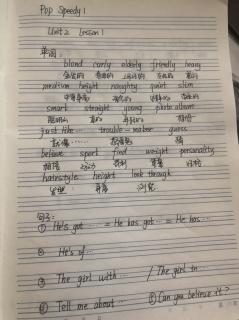 Pop Speedy 1
Unit 2 Lesson 1
单词:
blond curly elderly friendly heavy
金发的 卷曲的 上年纪的 友好的 重的
medium height naughty quiet slim
smart straight young photo album
聪明的 直的 年轻的 相册
just like... trouble-maker guess
就像... 猜
believe sport find weight personality
相信 运动 找到 体重 性格
hairstyle height look through
发型 身高 浏览
句子:
① He's got ... = He has got ... = He has ...
② He's of ...
③ The girl with ... / The girl in ...
④ Tell me about ... ⑤ Can you believe it?